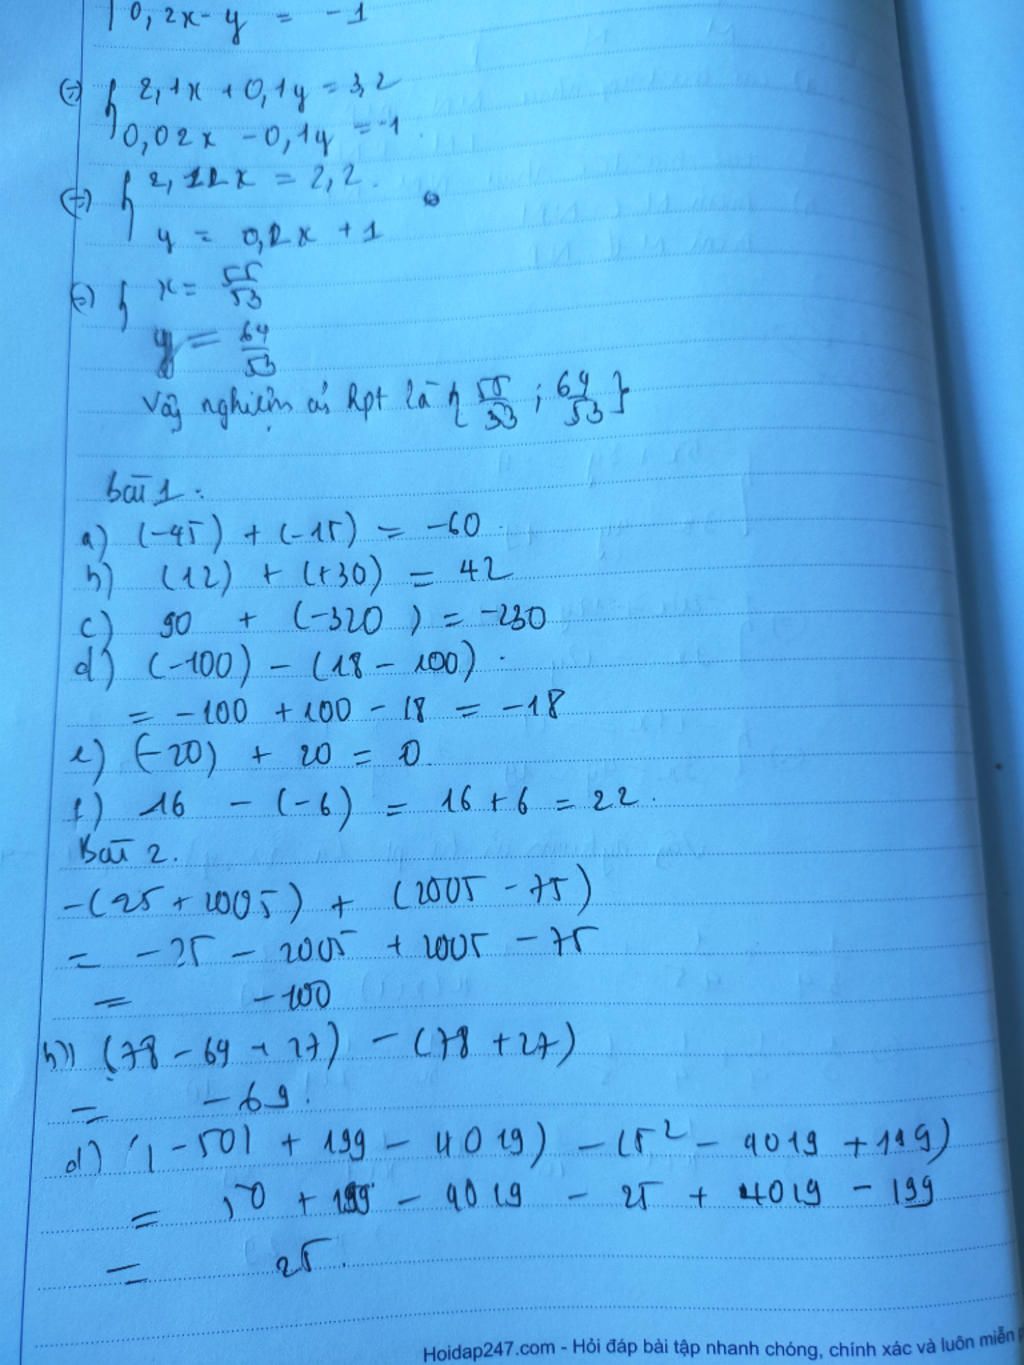 0,2x - y = -1
(=) { 2,1x + 0,1y = 3,2
0,02x - 0,1y = -1
(=) { 2,12x = 2,2
y = 0,2x + 1
(=) { x = 55/53
y = 64/53
Vậy nghiệm của hpt là { 55/53 ; 64/53 }
bài 1:
a) (-45) + (-15) = -60
b) (12) + (+30) = 42
c) 90 + (-320) = -230
d) (-100) - (18 - 100)
= -100 + 100 - 18 = -18
e) (-20) + 20 = 0
f) 16 - (-6) = 16 + 6 = 22.
Bài 2.
-(25 + 2005) + (2005 - 75)
= -25 - 2005 + 2005 - 75
= -100
b) (78 - 69 + 27) - (78 + 27)
= -69.
d) (|-50| + 199 - 4019) - (5² - 4019 + 199)
= 50 + 199 - 4019 - 25 + 4019 - 199
= 25.
Hoidap247.com - Hỏi đáp bài tập nhanh chóng, chính xác và luôn miễn